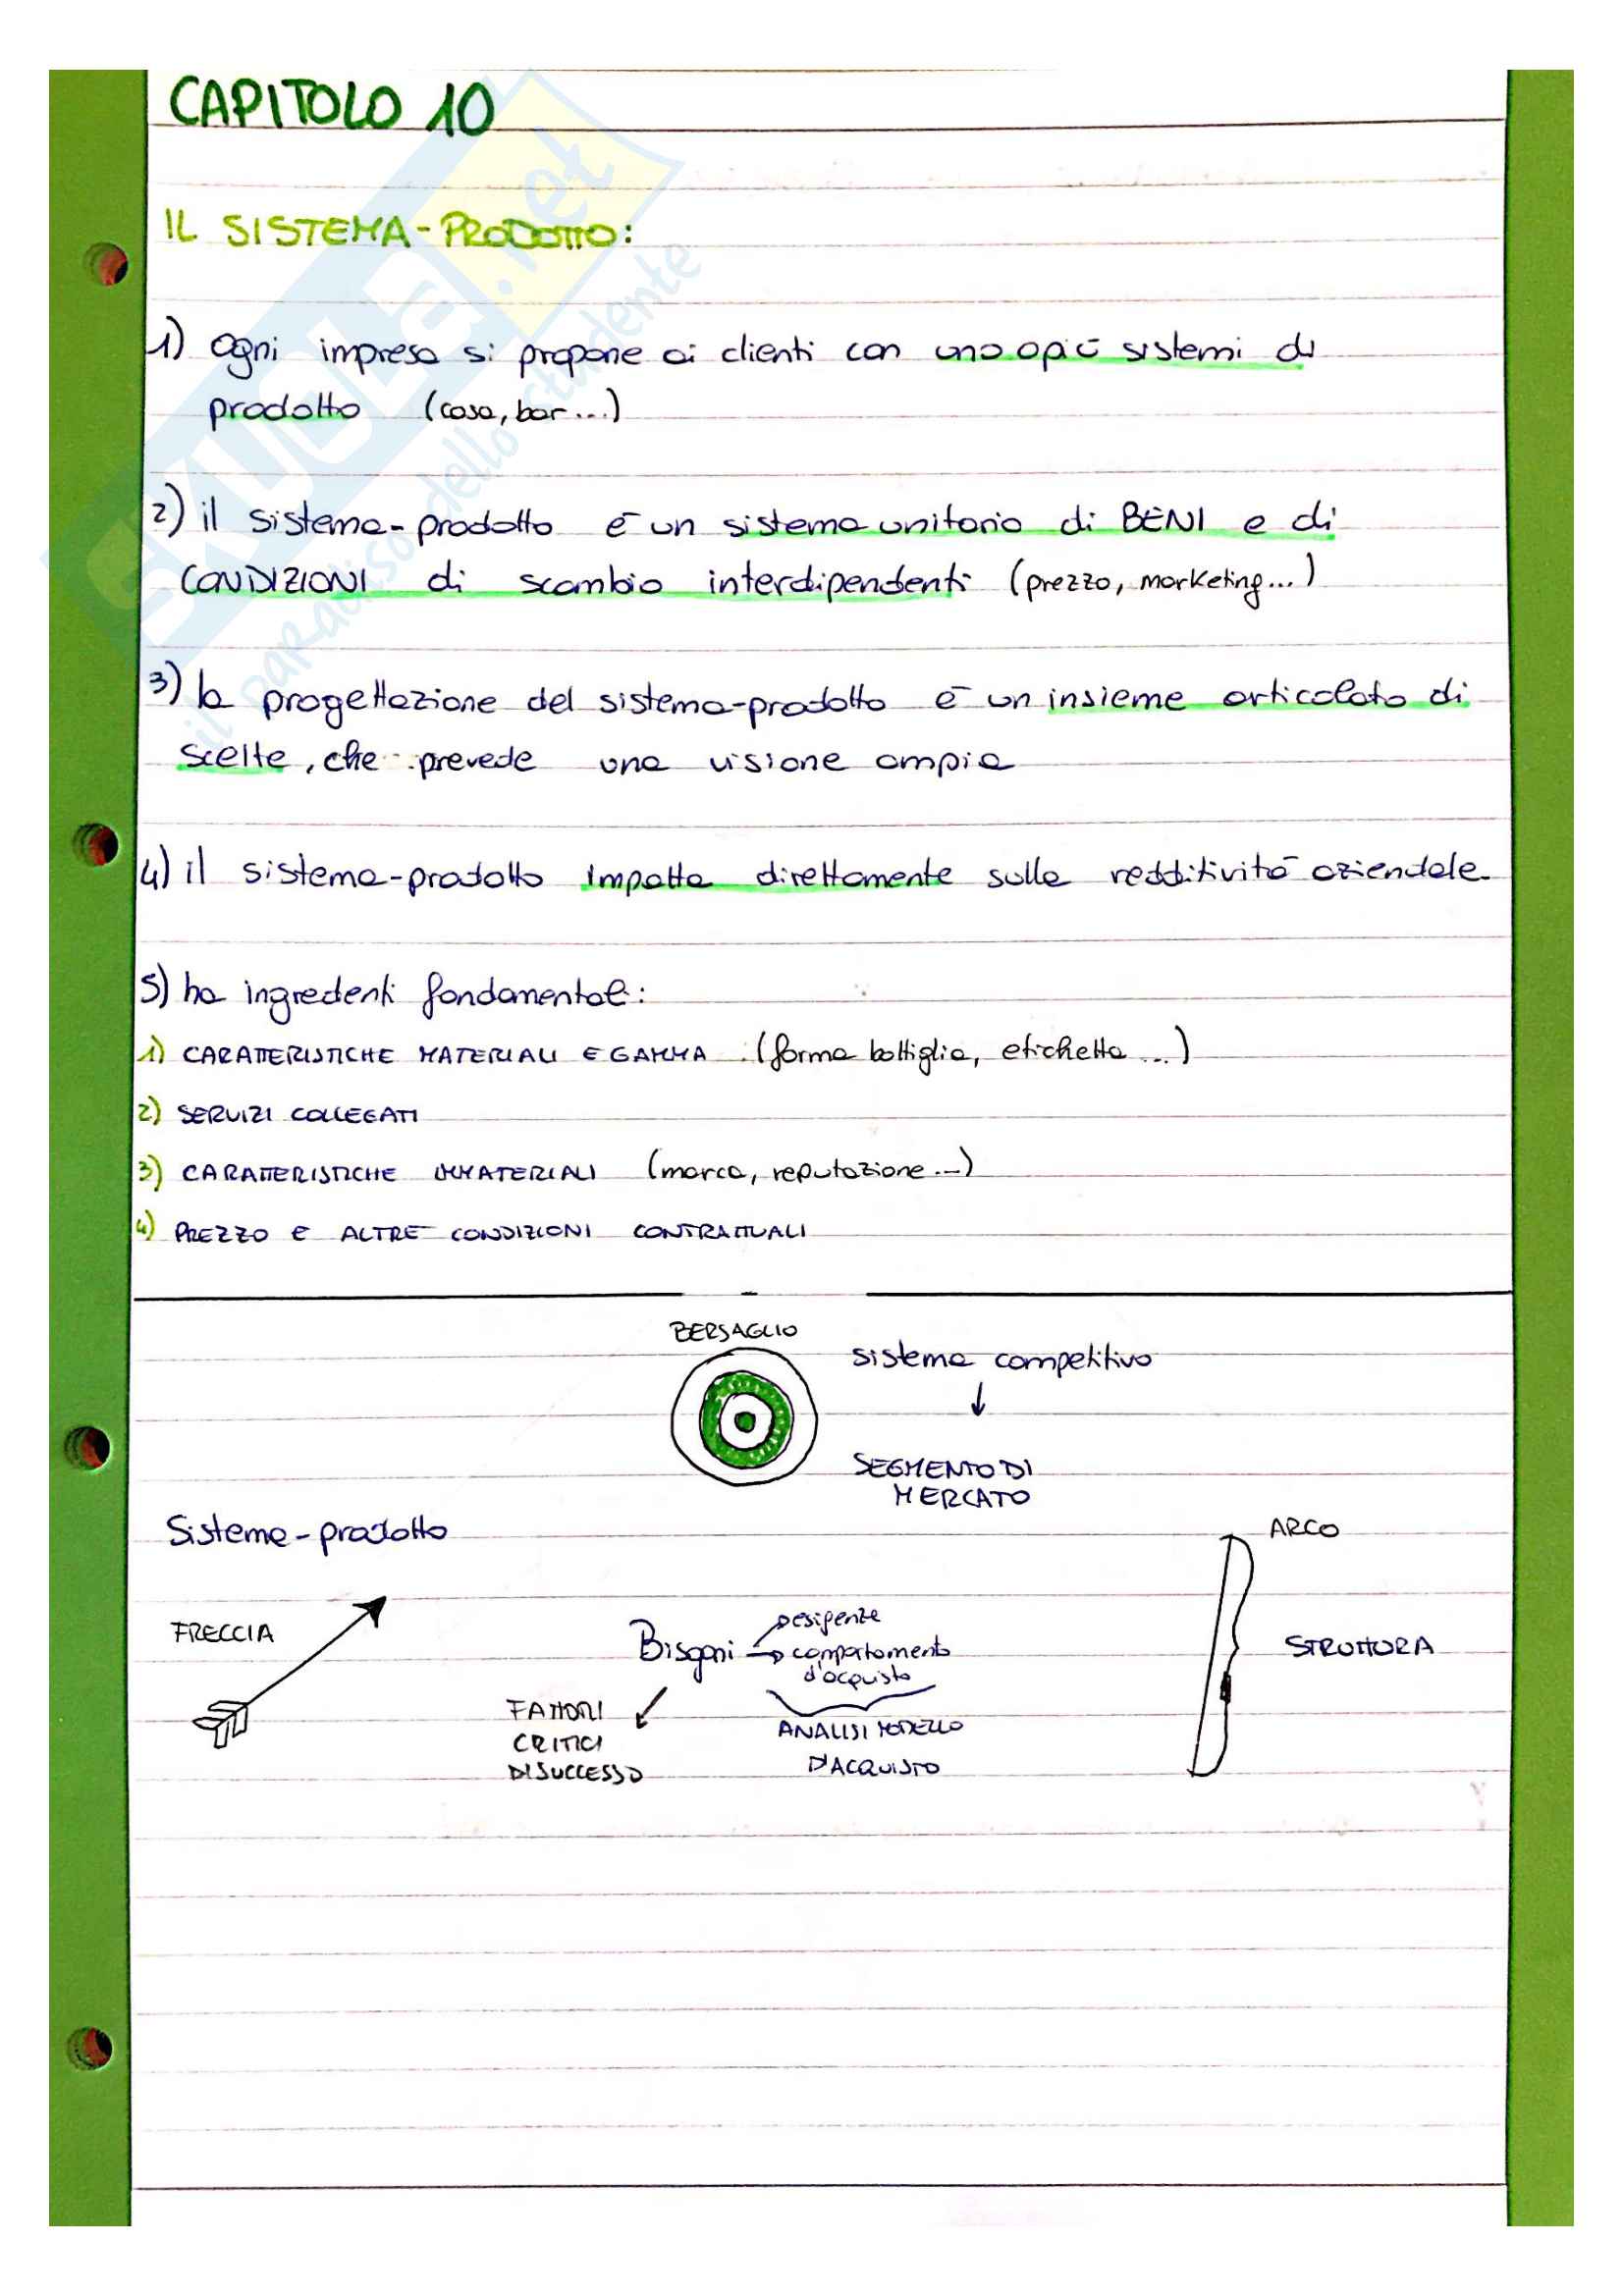 CAPITOLO 10
IL SISTEMA-PRODOTTO:
1) ogni impresa si propone ai clienti con uno o più sistemi di
prodotto (casa, bar...)
2) il sistema-prodotto è un sistema unitario di BENI e di
CONDIZIONI di scambio interdipendenti (prezzo, marketing...)
3) la progettazione del sistema-prodotto è un insieme articolato di
scelte, che prevede una visione ampia
4) il sistema-prodotto impatta direttamente sulla redditività aziendale
5) ha ingredenti fondamentali:
1) CARATTERISTICHE MATERIALI E GAMMA (forma bottiglia, etichetta...)
2) SERVIZI COLLEGATI
3) CARATTERISTICHE IMMATERIALI (marca, reputazione...)
4) PREZZO E ALTRE CONDIZIONI CONTRATTUALI
BERSAGLIO
sistema competitivo
↓
SEGMENTO DI
MERCATO
Sistema-prodotto
ARCO
FRECCIA
Bisogni → esigenze
→ comportamento
d'acquisto
STRUTTURA
FATTORI
CRITICI
DI SUCCESSO
ANALISI MODELLO
D'ACQUISTO
SKUOLA.net
il paradiso dello studente